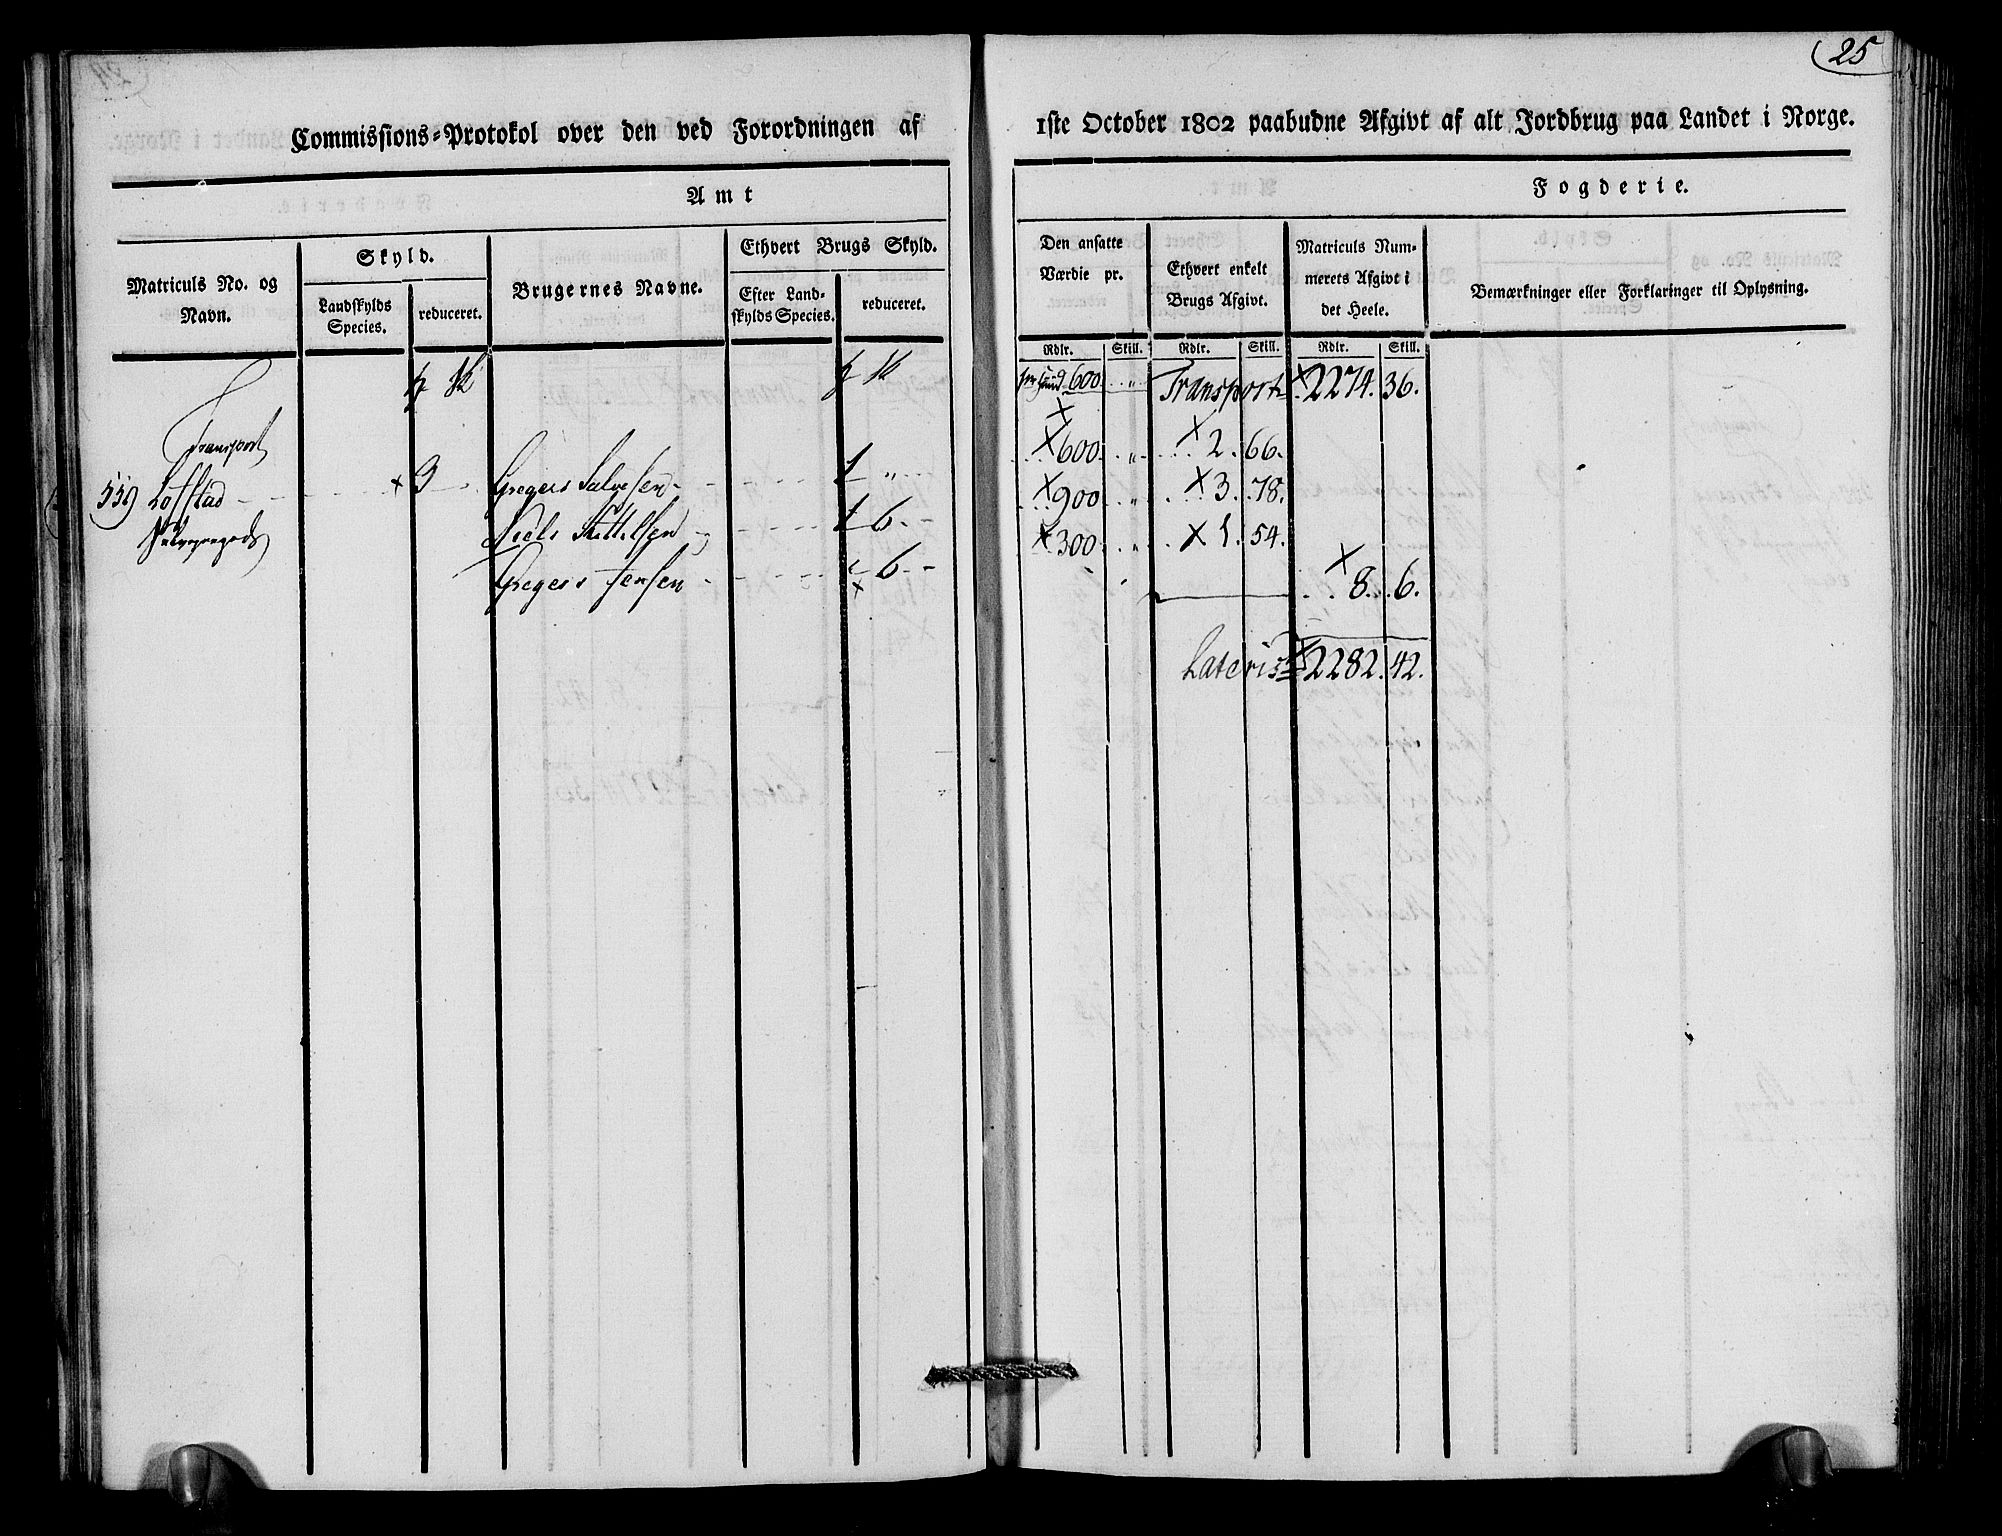 25
Commissions-Protokol over den ved Forordningen af
1ste October 1802 paabudne Afgivt af alt Jordbrug paa Landet i Norge.
Amt
Fogderie.
Matriculs No. og Navn.
Skyld.
Landskylds Species.
reduceret.
Brugernes Navne.
Ethvert Brugs Skyld.
Efter Landskylds Species.
reduceret.
Den ansatte Værdie pr.
Ethvert enkelt Brugs Afgivt.
Matriculs Nummerets Afgivt i det Heele.
Bemærkninger eller Forklaringer til Oplysning.
Rdlr. Skill. Rdlr. Skill. Rdlr. Skill.
600 Transport 2274. 36.
Transport
600 2. 66.
559 Lofstad 3 Gregers Salvesen 1 "
900 3. 78.
Niels Kittelsen 1 6
300 1. 54.
Gregers Jensen 6
8. 6.
Lateris 2282. 42.